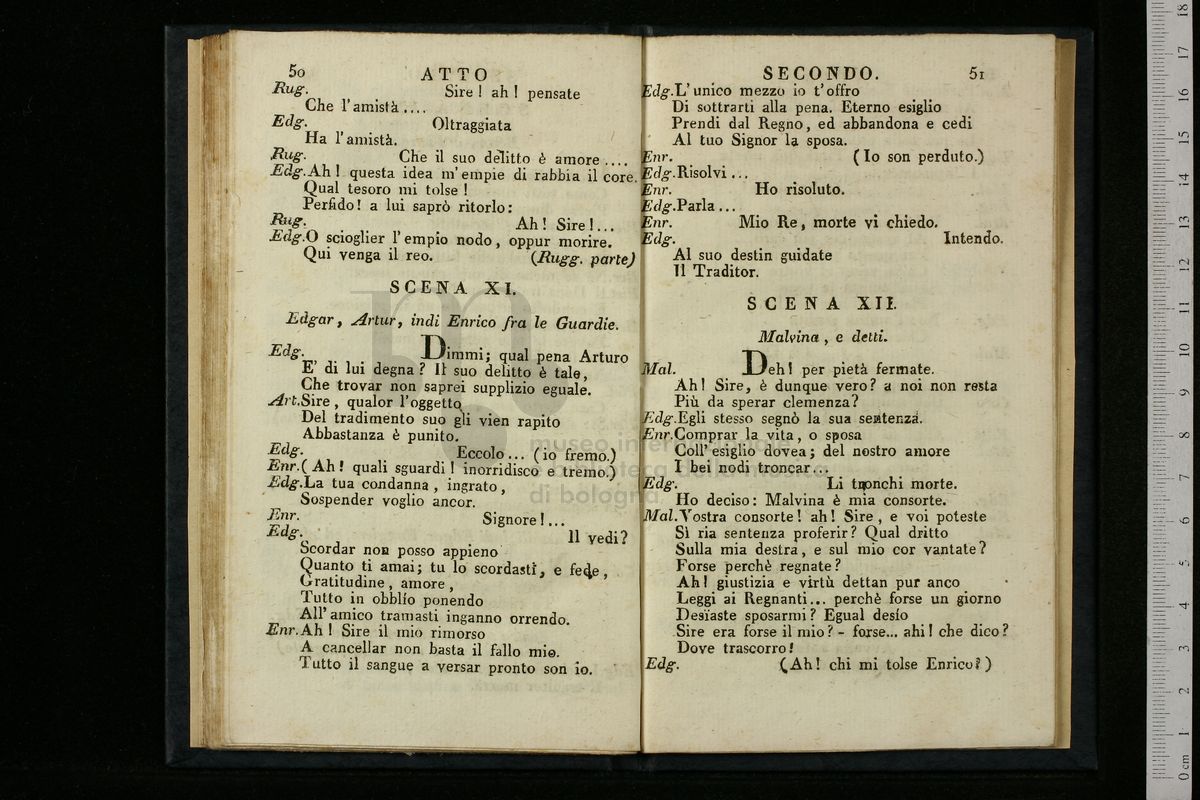 50 ATTO
Rug. Sire! ah! pensate
Che l'amistà....
Edg. Oltraggiata
Ha l'amistà.
Rug. Che il suo delitto è amore....
Edg. Ah! questa idea m'empie di rabbia il core.
Qual tesoro mi tolse!
Perfido! a lui saprò ritorlo:
Rug. Ah! Sire!...
Edg. O scioglier l'empio nodo, oppur morire.
Qui venga il reo. (Rugg. parte)
SCENA XI.
Edgar, Artur, indi Enrico fra le Guardie.
Edg. Dimmi; qual pena Arturo
E' di lui degna? Il suo delitto è tale,
Che trovar non saprei supplizio eguale.
Art. Sire, qualor l'oggetto
Del tradimento suo gli vien rapito
Abbastanza è punito.
Edg. Eccolo... (io fremo.)
Enr. (Ah! quali sguardi! inorridisco e tremo.)
Edg. La tua condanna, ingrato,
Sospender voglio ancor.
Enr. Signore!...
Edg. Il vedi?
Scordar non posso appieno
Quanto ti amai; tu lo scordasti, e fede,
Gratitudine, amore,
Tutto in obblío ponendo
All'amico tramasti inganno orrendo.
Enr. Ah! Sire il mio rimorso
A cancellar non basta il fallo mio.
Tutto il sangue a versar pronto son io.
SECONDO. 51
Edg. L'unico mezzo io t'offro
Di sottrarti alla pena. Eterno esiglio
Prendi dal Regno, ed abbandona e cedi
Al tuo Signor la sposa.
Enr. (Io son perduto.)
Edg. Risolvi...
Enr. Ho risoluto.
Edg. Parla...
Enr. Mio Re, morte vi chiedo.
Edg. Intendo.
Al suo destin guidate
Il Traditor.
SCENA XII.
Malvina, e detti.
Mal. Deh! per pietà fermate.
Ah! Sire, è dunque vero? a noi non resta
Più da sperar clemenza?
Edg. Egli stesso segnò la sua sentenza.
Enr. Comprar la vita, o sposa
Coll'esiglio dovea; del nostro amore
I bei nodi troncar...
Edg. Li tronchi morte.
Ho deciso: Malvina è mia consorte.
Mal. Vostra consorte! ah! Sire, e voi poteste
Sì ria sentenza proferir? Qual dritto
Sulla mia destra, e sul mio cor vantate?
Forse perchè regnate?
Ah! giustizia e virtù dettan pur anco
Leggi ai Regnanti... perchè forse un giorno
Desiaste sposarmi? Egual desío
Sire era forse il mio? - forse... ahi! che dico?
Dove trascorro!
Edg. (Ah! chi mi tolse Enrico?)
museo internazionale
e biblioteca della musica
di bologna
0 cm 1 2 3 4 5 6 7 8 9 10 11 12 13 14 15 16 17 18